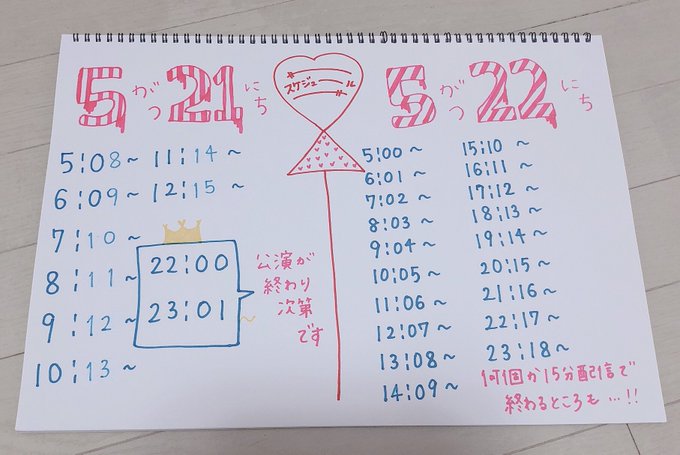 5がつ21にち
5:08~ 11:14~
6:09~ 12:15~
7:10~
8:11~
9:12~
10:13~
22:00
23:01~
公演が
終わり
次第
です
#
スケジュール
#
5がつ22にち
5:00~
6:01~
7:02~
8:03~
9:04~
10:05~
11:06~
12:07~
13:08~
14:09~
15:10~
16:11~
17:12~
18:13~
19:14~
20:15~
21:16~
22:17~
23:18~
何個か15分配信で
終わるところも…!!